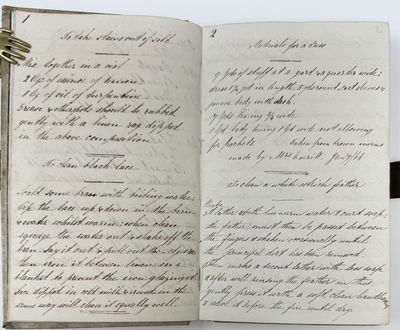 1
To take stains out of silk
Mix together in a vial
2 oz of essence of lemon
1 oz of oil of turpentine
Grease & other spots should be rubbed
gently with a linen rag dipped
in the above composition
To clean black lace
Scald some bran with boiling water
dip the lace up & down in the bran
& water whilst warm, & when clean
squeeze the water out & shake off the
bran, lay it out & pull out the edges &c
then iron it between linen on a
blanket to prevent the iron glazing
or dipped in cold milk & ironed in the
same way will clean it equally well.
2
Materials for a dress
9 yds of stuff at a yard & a quarter wide
dress in length
body with
yds lining wide
yd body lining 1 yd wide not allowing
for pockets taken from brown merino
made by Mrs
To clean a white ostrich feather
A lather with lukewarm water & curd soap
the feather must then be passed between
the fingers & shaken occasionally until
the principal dirt has been removed
then make a second lather with less soap
& after well rinsing the feather in this
gently press it with a soft clean
& wave it before the fire until dry.